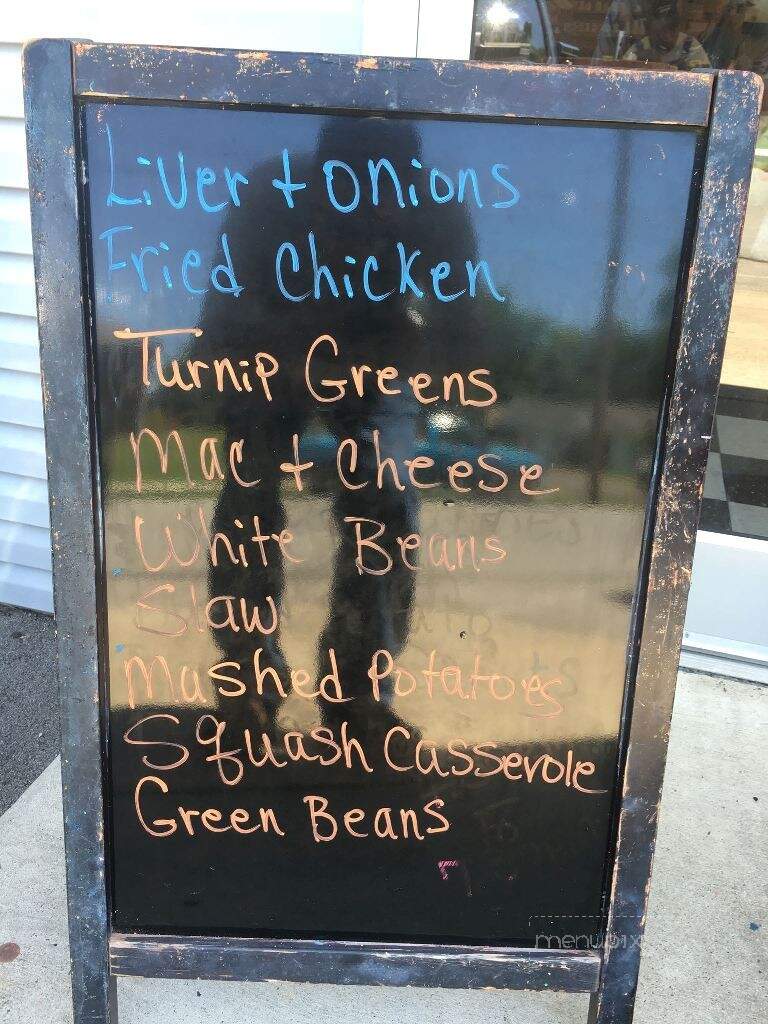 Liver + onions
Fried Chicken
Turnip Greens
Mac + Cheese
White Beans
Slaw
Mashed Potatoes
Squash Casserole
Green Beans
menupix